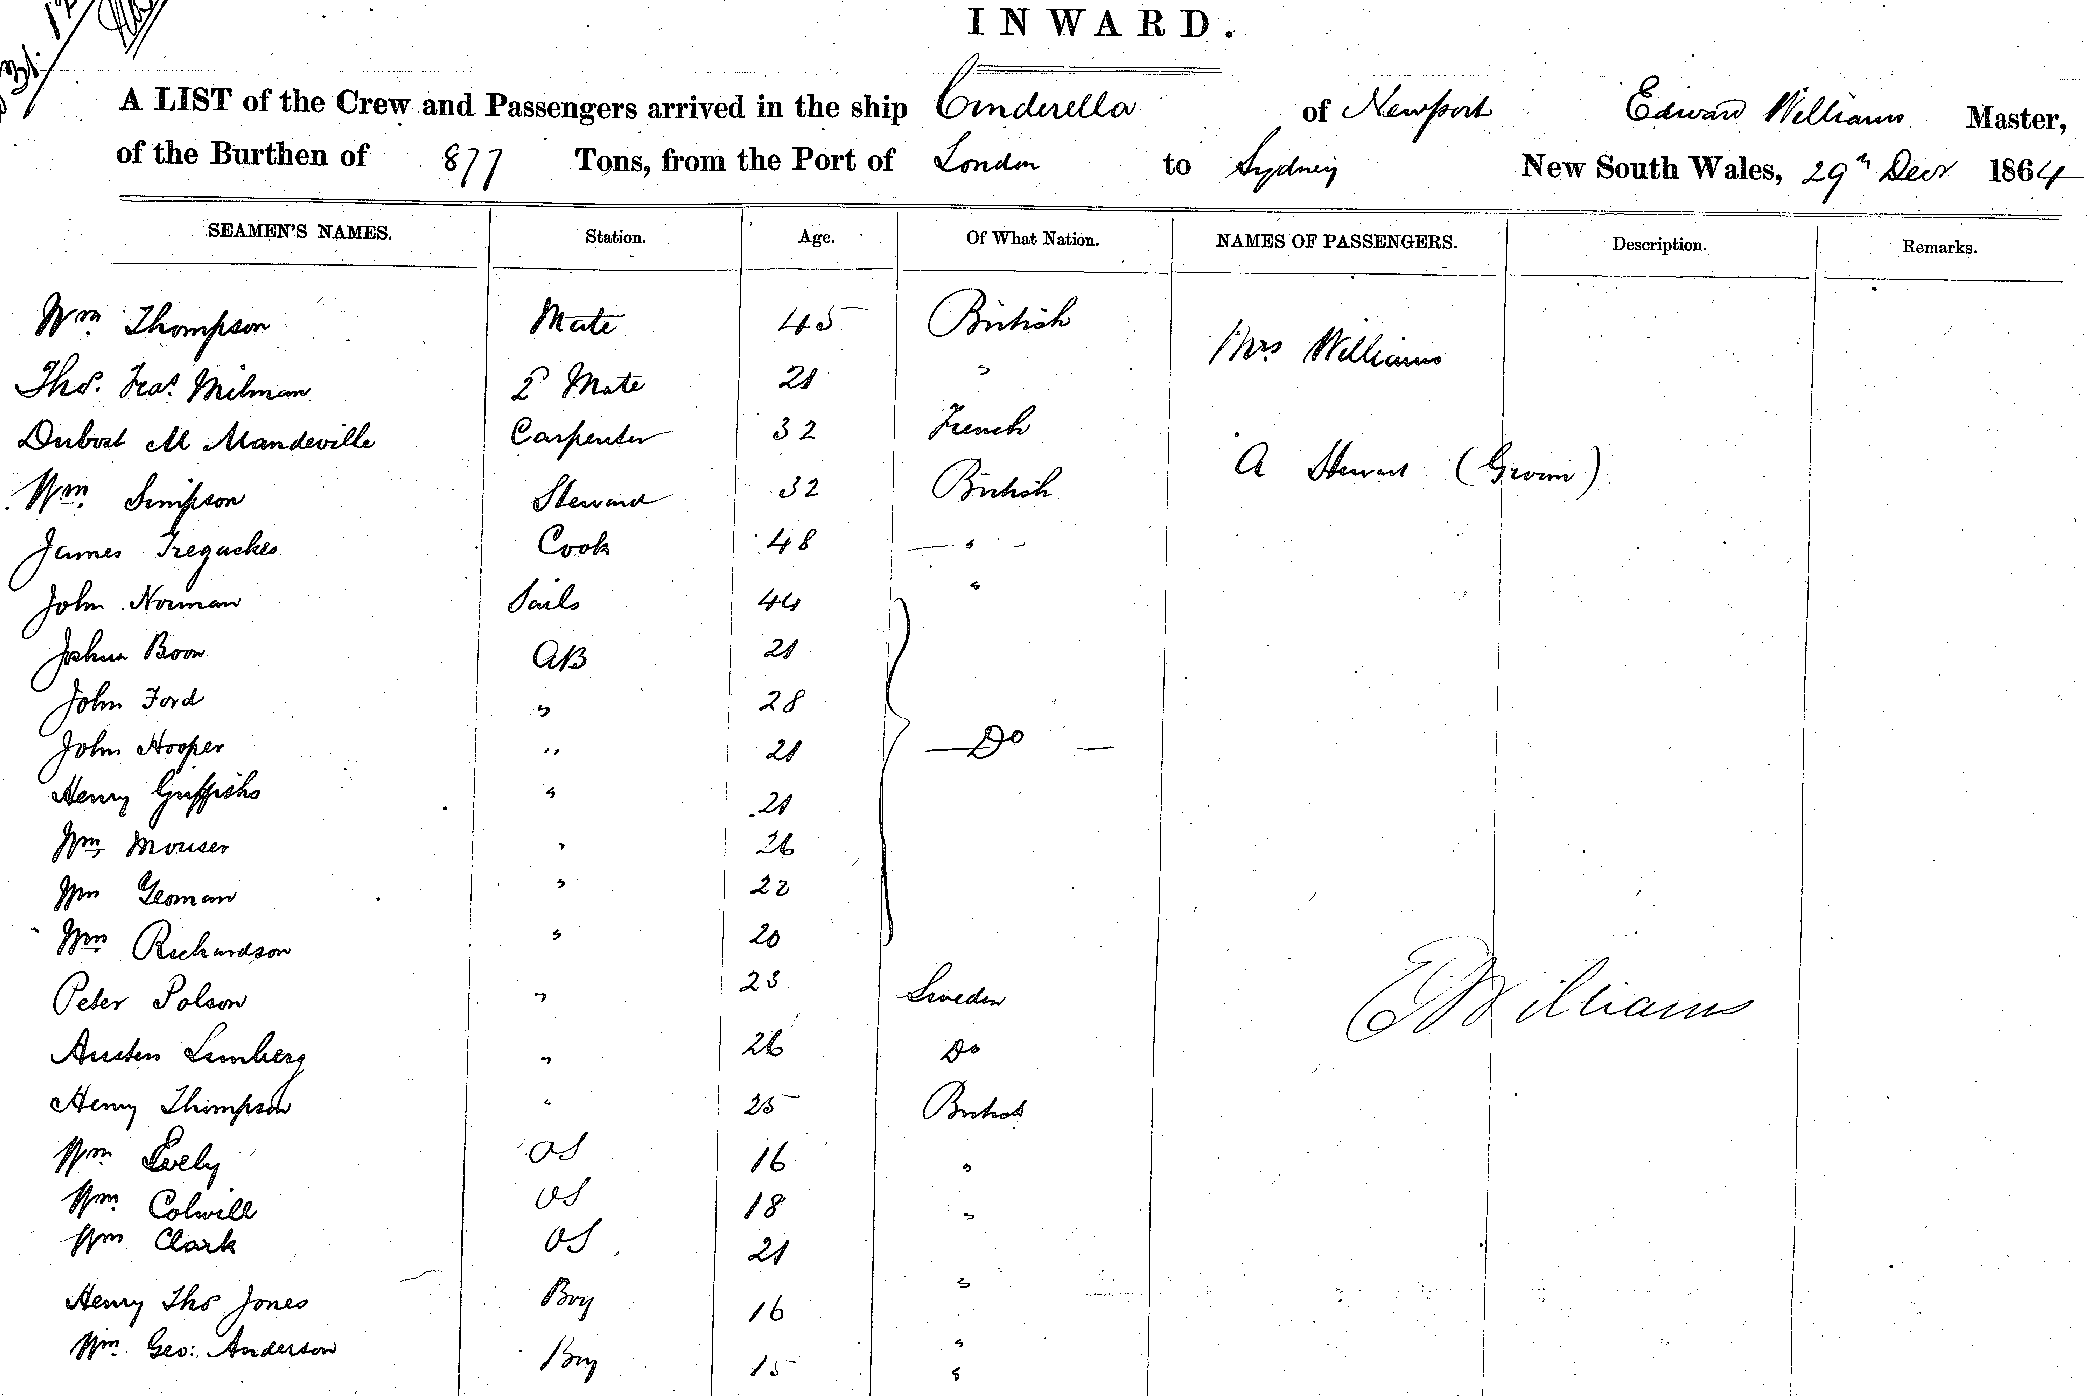 31.
INWARD.
A LIST of the Crew and Passengers arrived in the ship Cinderella of Newport Edward Williams Master,
of the Burthen of 877 Tons, from the Port of London to Sydney New South Wales, 29th Decr 1864
SEAMEN'S NAMES. Station. Age. Of What Nation. NAMES OF PASSENGERS. Description. Remarks.
Wm Thompson Mate 45 British Mrs Williams
Thos. Fras. Milman 2d Mate 21 "
Dubost M Mandeville Carpenter 32 French
A Stewart (Groom)
Wm. Simpson Steward 32 British
James Tregaskes Cook 48 — " —
John Norman Sails 44 "
Joshua Boon AB 21
John Ford " 28
John Hooper " 21 — Do —
Henry Griffiths " 21
Wm Mouser " 26
Wm Yeoman " 22
Wm Richardson " 20
Peter Polson " 23 Sweden
E Williams
Austen Limberg " 26 Do
Henry Thompson " 25 British
Wm Evely OS 16 "
Wm. Colwill OS 18 "
Wm Clark OS 21
Henry Thos Jones Boy 16 "
Wm. Geo: Anderson Boy 15 "
"